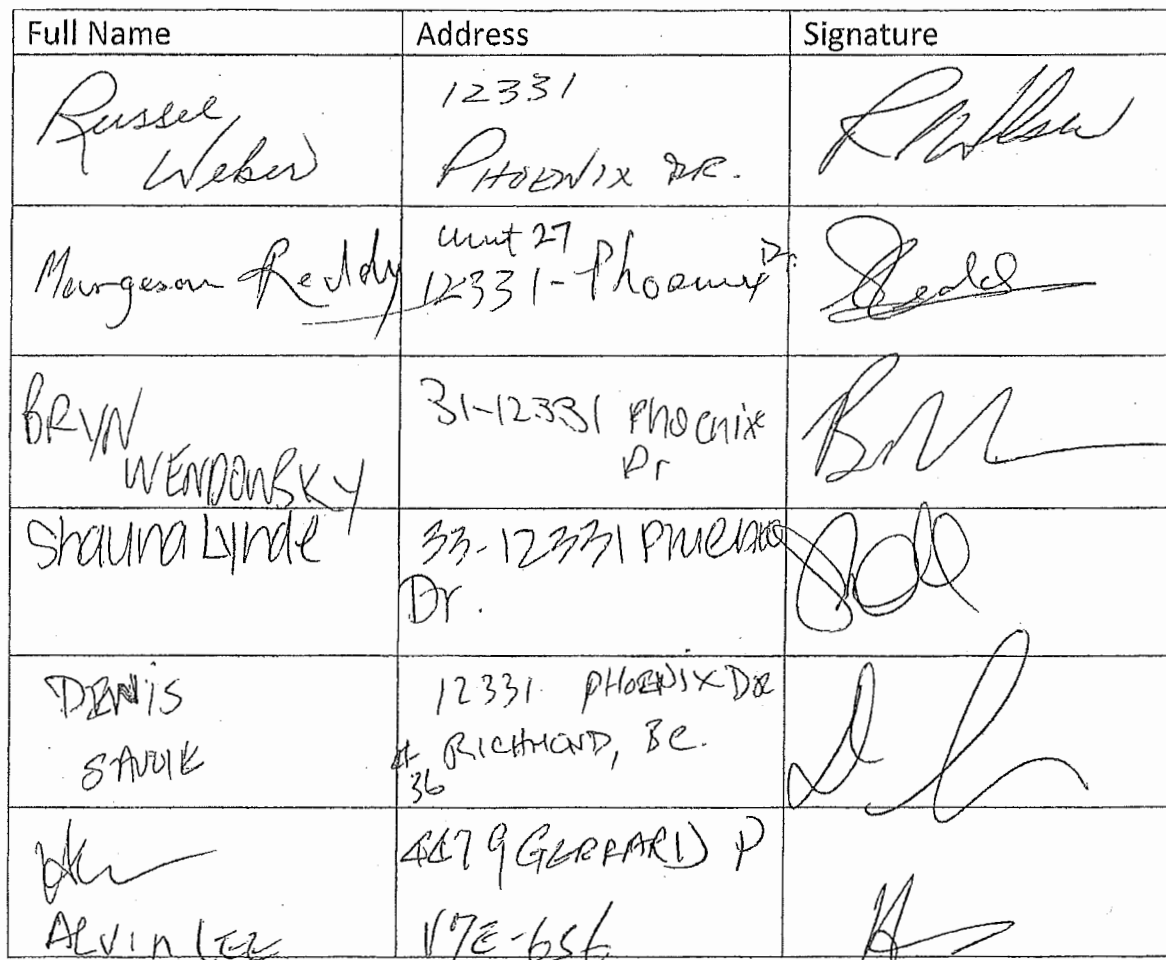 Full Name Address Signature
Russel
Weber
12331
PHOENIX DR.
Reddy
unit 27
12331-Phoenix Dr.
BRYN
WENDOWSKY
31-12331 Phoenix
Dr
Shauna Lynde
33-12331
Dr.
DENIS
SAVOIE
12331 PHOENIX DR
# 36 RICHMOND, BC.
ALVIN LEE
4479 GERRARD P
V7E-6S6